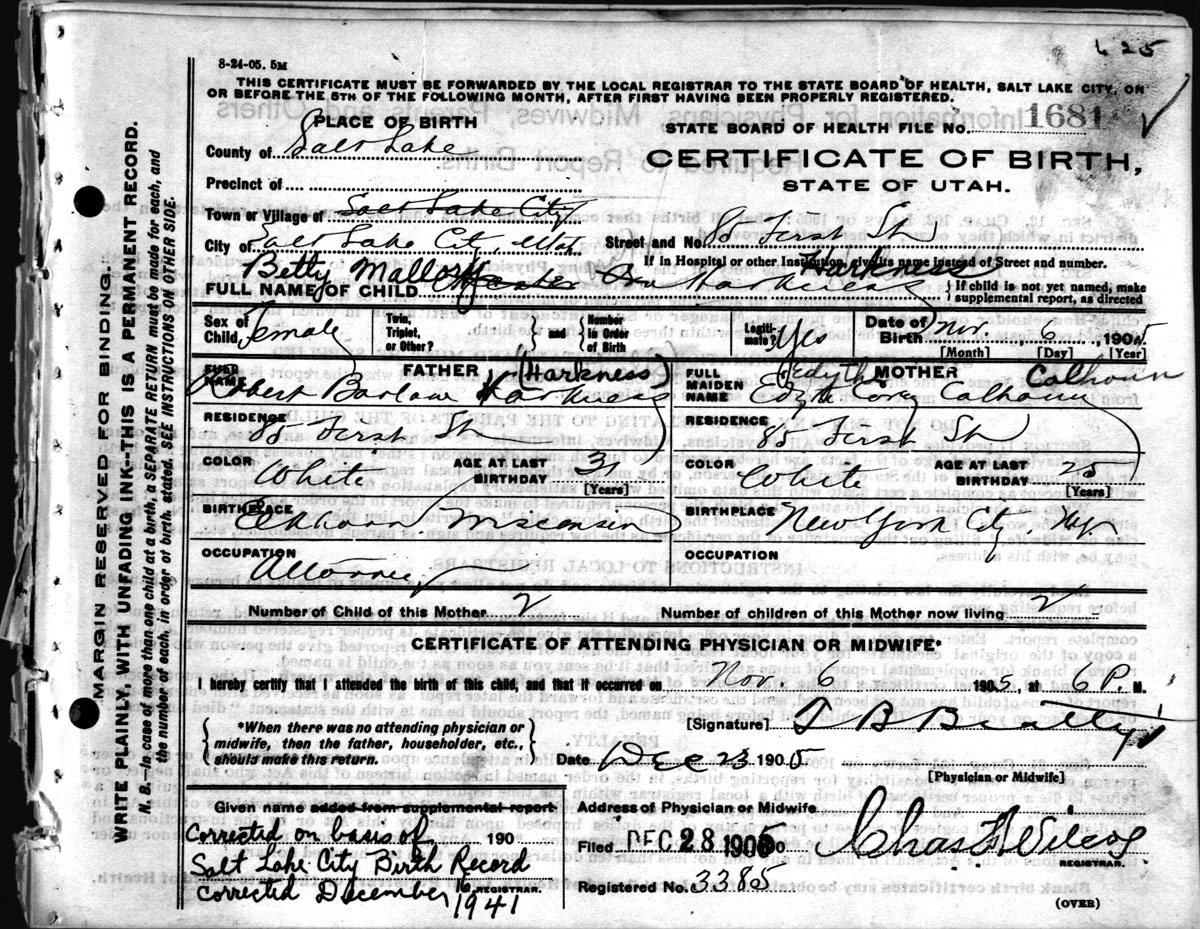 625
8-24-05. 5M
THIS CERTIFICATE MUST BE FORWARDED BY THE LOCAL REGISTRAR TO THE STATE BOARD OF HEALTH, SALT LAKE CITY, ON
OR BEFORE THE 5TH OF THE FOLLOWING MONTH, AFTER FIRST HAVING BEEN PROPERLY REGISTERED.
PLACE OF BIRTH
STATE BOARD OF HEALTH FILE No. 1681
County of Salt Lake
CERTIFICATE OF BIRTH,
Precinct of
STATE OF UTAH.
Town or Village of Salt Lake City
City of Salt Lake City, Utah Street and No. 85 First St
If in Hospital or other Institution, give its name instead of Street and number.
Betty Mallory Harkness
FULL NAME OF CHILD Harkness { If child is not yet named, make supplemental report, as directed
Sex of Child Female Twin, Triplet, or Other? } and { Number in Order of Birth Legitimate? Yes Date of Birth Nov. 6, 1905
[Month] [Day] [Year]
FATHER (Harkness)
FULL NAME Robert Barlow Harkness
RESIDENCE 85 First St
COLOR White AGE AT LAST BIRTHDAY 31 [Years]
BIRTHPLACE Elkhorn Wisconsin
OCCUPATION Attorney
Edyth MOTHER Calhoun
FULL MAIDEN NAME Edyth Cory Calhoun
RESIDENCE 85 First St
COLOR White AGE AT LAST BIRTHDAY [Years]
BIRTHPLACE New York City N.Y.
OCCUPATION
Number of Child of this Mother 2 Number of children of this Mother now living 2
CERTIFICATE OF ATTENDING PHYSICIAN OR MIDWIFE*
I hereby certify that I attended the birth of this child, and that it occurred on Nov. 6 1905, at 6 P. M.
{ *When there was no attending physician or midwife, then the father, householder, etc., should make this return. }
[Signature]
Date Dec 23 1905
[Physician or Midwife]
Given name added from supplemental report
Corrected on basis of 190
Salt Lake City Birth Record
REGISTRAR.
Corrected December 16 1941
Address of Physician or Midwife
Filed DEC 28 1905 Chas F Wilcox
REGISTRAR.
Registered No. 3385
(OVER)
MARGIN RESERVED FOR BINDING.
WRITE PLAINLY, WITH UNFADING INK--THIS IS A PERMANENT RECORD.
N. B.—In case of more than one child at a birth, a SEPARATE RETURN must be made for each, and
the number of each, in order of birth, stated. SEE INSTRUCTIONS ON OTHER SIDE.